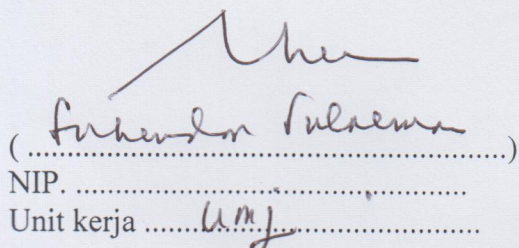 ( Suhendar Sulaeman )
NIP. ....................................................
Unit kerja ........UMJ.............................